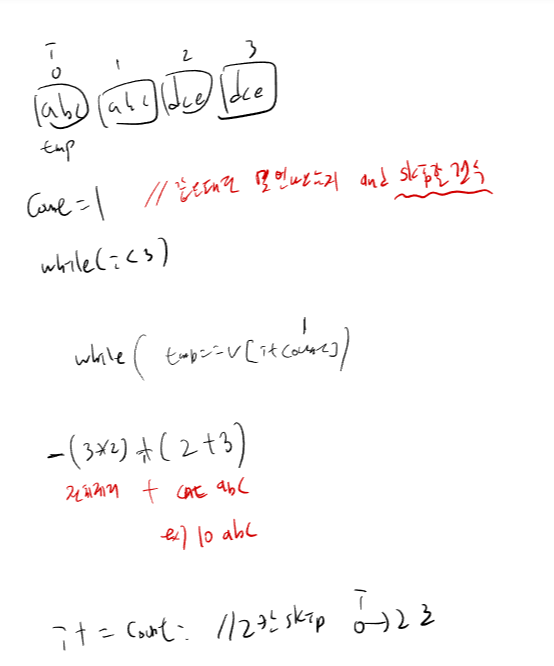 i
0 1 2 3
abc abc dce dce
tmp
Count=1 // 같은패턴 몇번나왔는지 and skip할갯수
while(i<3)
1
while( tmp==v[i+count])
-(3*2)+(2+3)
전체길이 + cnt abc
ex) 10 abc
i
i+=count; //2칸skip 0→2 3